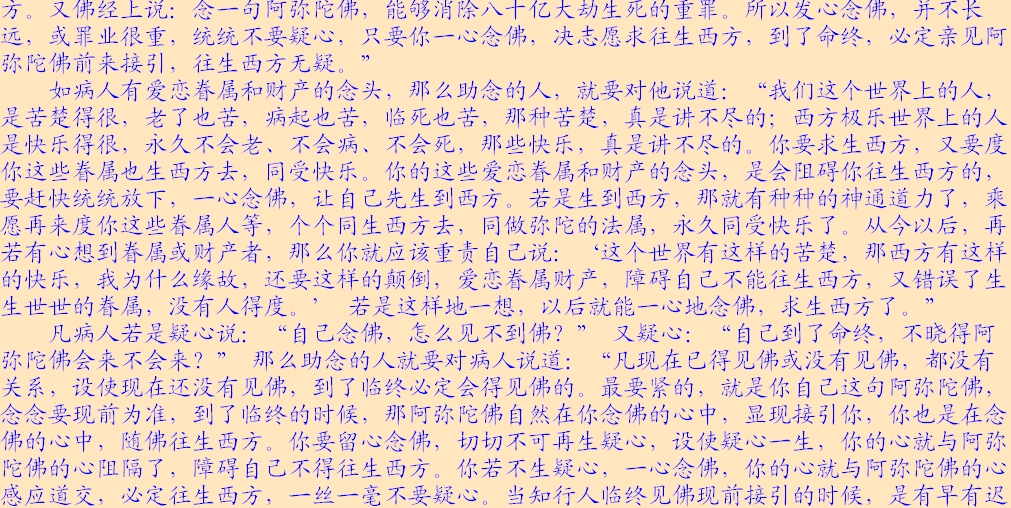 方。又佛经上说：念一句阿弥陀佛，能够消除八十亿大劫生死的重罪。所以发心念佛，并不长
远，或罪业很重，统统不要疑心，只要你一心念佛，决志愿求往生西方，到了命终，必定亲见阿
弥陀佛前来接引，往生西方无疑。”
如病人有爱恋眷属和财产的念头，那么助念的人，就要对他说道：“我们这个世界上的人，
是苦楚得很，老了也苦，病起也苦，临死也苦，那种苦楚，真是讲不尽的；西方极乐世界上的人
是快乐得很，永久不会老、不会病、不会死，那些快乐，真是讲不尽的。你要求生西方，又要度
你这些眷属也生西方去，同受快乐。你的这些爱恋眷属和财产的念头，是会阻碍你往生西方的，
要赶快统统放下，一心念佛，让自己先生到西方。若是生到西方，那就有种种的神通道力了，乘
愿再来度你这些眷属人等，个个同生西方去，同做弥陀的法属，永久同受快乐了。从今以后，再
若有心想到眷属或财产者，那么你就应该重责自己说：‘这个世界有这样的苦楚，那西方有这样
的快乐，我为什么缘故，还要这样的颠倒，爱恋眷属财产，障碍自己不能往生西方，又错误了生
生世世的眷属，没有人得度。’ 若是这样地一想，以后就能一心地念佛，求生西方了。”
凡病人若是疑心说：“自己念佛，怎么见不到佛？” 又疑心：“自己到了命终，不晓得阿
弥陀佛会来不会来？” 那么助念的人就要对病人说道：“凡现在已得见佛或没有见佛，都没有
关系，设使现在还没有见佛，到了临终必定会得见佛的。最要紧的，就是你自己这句阿弥陀佛，
念念要现前为准，到了临终的时候，那阿弥陀佛自然在你念佛的心中，显现接引你，你也是在念
佛的心中，随佛往生西方。你要留心念佛，切切不可再生疑心，设使疑心一生，你的心就与阿弥
陀佛的心阻隔了，障碍自己不得往生西方。你若不生疑心，一心念佛，你的心就与阿弥陀佛的心
感应道交，必定往生西方，一丝一毫不要疑心。当知行人临终见佛现前接引的时候，是有早有迟